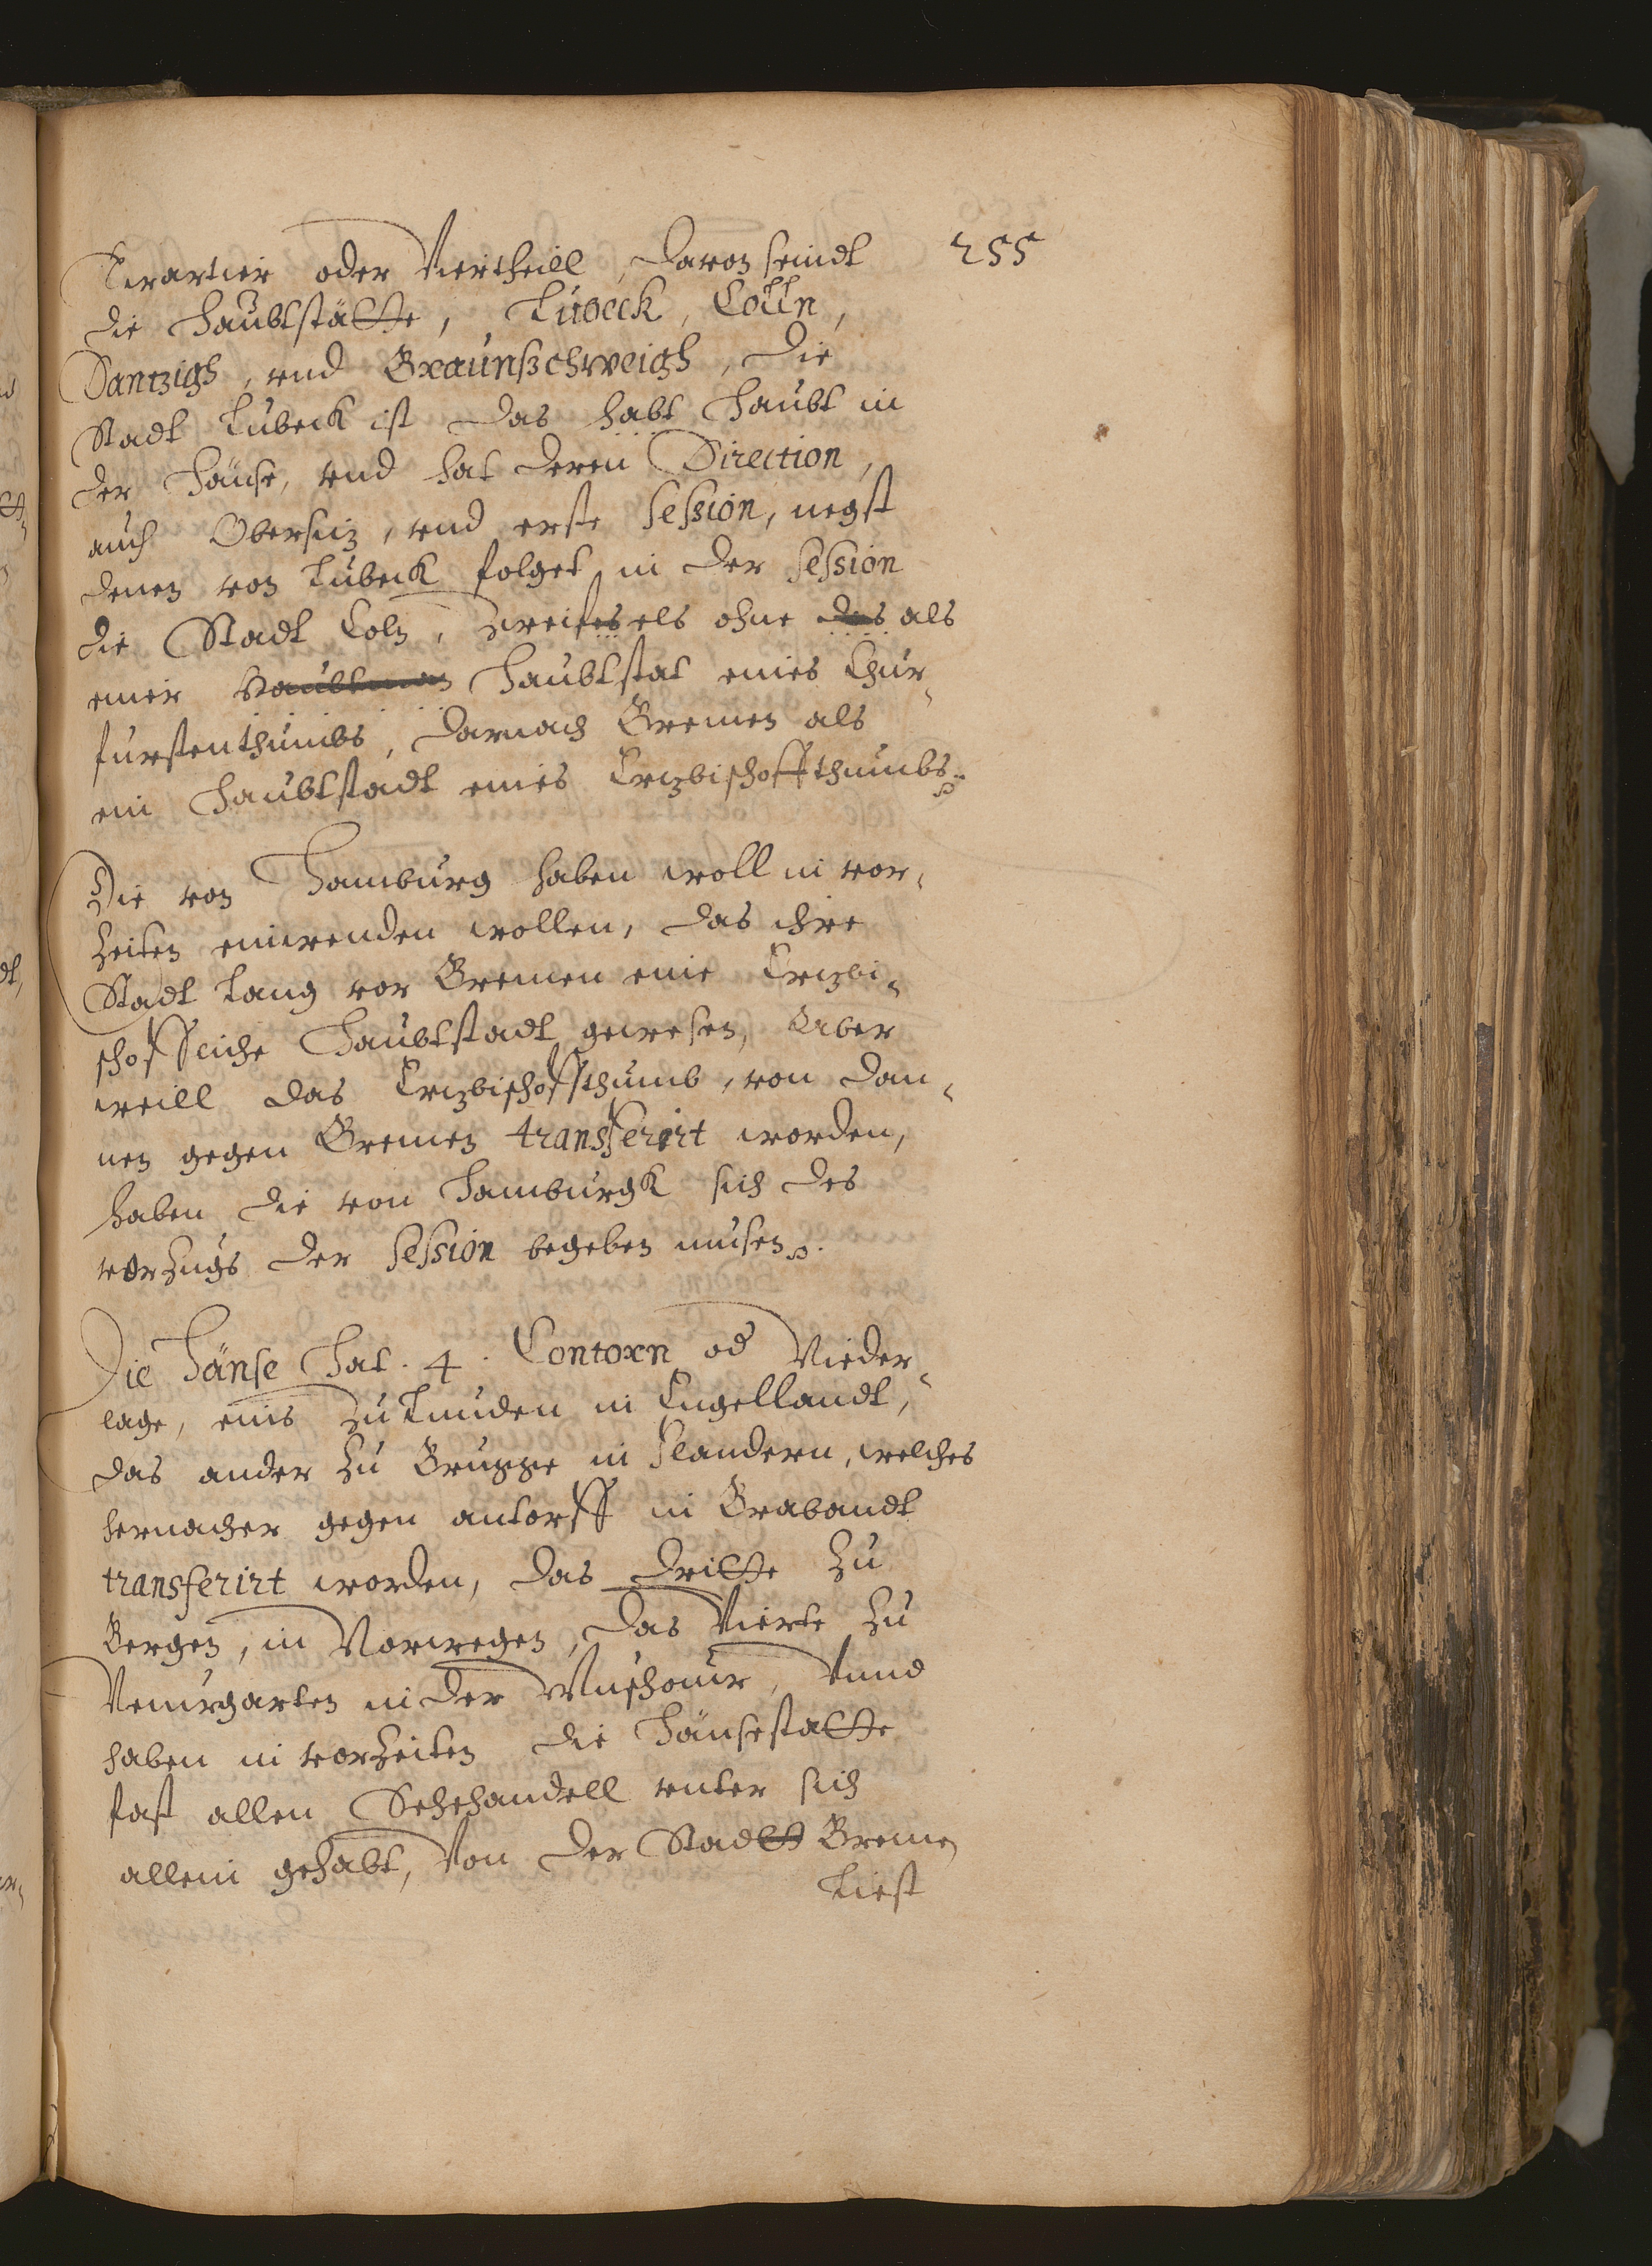 255
Quartier oder Viertheill, davon seindt
die Haubtstätte, Lübeck, Cölln,
Dantzigh, vnd Braunßchweigh, die
Stadt Lubeck ist das habt Haubt in
der Hänse, vnd hat deren Direction,
auch Obersitz, vnd erste Session, negst
denen von Lubeck folget in der Session
die Stadt Coln, Zweifesels ohne das als
einer Haubtman Haubtstat eines Chur-
furstenthumbs, darnach Bremen als
ein Haubtstadt eines Ertzbischoffthumbs.
Die von Hamburg haben woll in vor-
Zeiten einwenden wollen, das ihre
Stadt Lang vor Bremen eine Ertzbi-
schoffliche Haubtstadt gewesen, Aber
weill das Ertzbischoffthumb, von dan-
nen gegen Bremen transferirt worden,
haben die von Hamburgk sich des
vorzugs der Session begeben musen.
Die Hänse Hat. 4. Contorn od Nieder-
lage, eins Zu Lunden in Engellandt,
das ander Zu Brugge in Flandern, welches
hernacher gegen antorff in Brabandt
transferirt worden, das dritte Zu
Bergen, in Norwegen, das Vierte Zu
Neuwgarten in der Muschouw, Vnnd
haben in vorzeiten die Hänsestatte
fast allen Sehehandell vnter sich
allein gehabt, Von der Stadtt Bremen
Liest